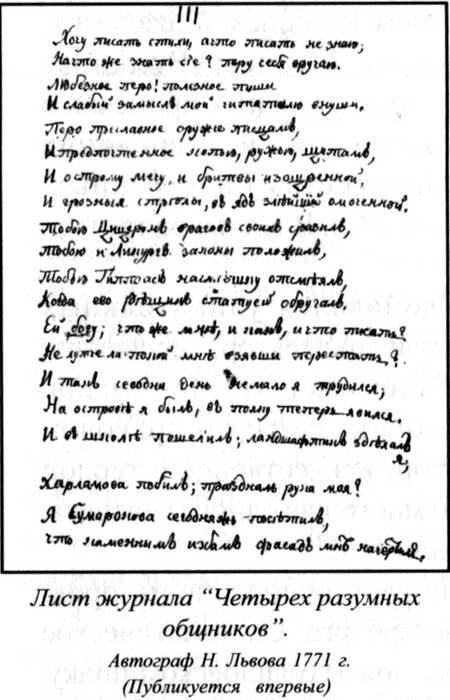 III
Хочу писать стихи, а что писать не знаю;
На что же знать сіе? перу себя вручаю.
Любезное перо! полезное пиши
И слабый замыслъ мой читателю внуши.
Перо преславное оружіе пищамъ,
И предпочтенное копью, ружью, щитамъ,
И острому мечу, и бритвы изощренной,
И грозныя стрелы, въ ядъ змѣйный омоченной.
Тобою Цицеронъ враговъ своихъ сразилъ,
Тобою и Ликургъ законы положилъ,
Тобою насмѣшку отсмѣялъ,
Когда его статуей обручалъ,
Ей богу; что же мнѣ, и какъ, и что писать?
Не лутче ли тобой мнѣ взявши перестать?
И такъ севодни день немало я трудился;
На островѣ я былъ, въ полку теперь явился.
И въ школѣ пошелъ; ландшафтикъ здѣлалъ я,
Харламова побилъ; праздналь рука моя?
Я Сумарокова севоднажъ посѣтилъ,
Что каменнимъ фасадъ мнѣ начертилъ.
Лист журнала “Четырех разумных
общников”.
Автограф Н. Львова 1771 г.
(Публикуется впервые)